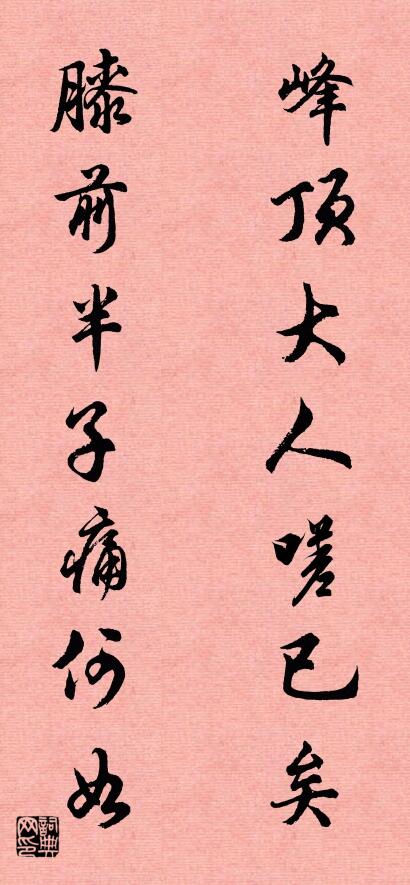 峰顶大人嗟已矣
膝前半子痛何如
词典网印